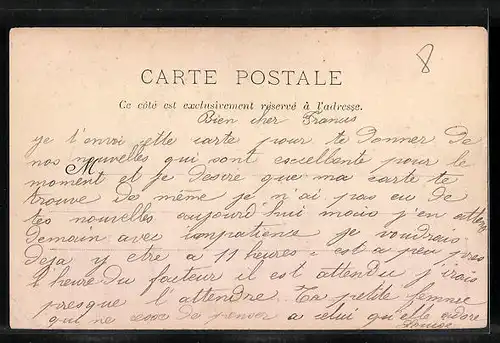 8
CARTE POSTALE
Ce côté est exclusivement réservé à l'adresse.
Bien cher Francis
je t'envoi cette carte pour te donner de
nos nouvelles qui sont excellente pour le
M
moment et je desire que ma carte te
trouve de même je n'ai pas eu de
tes nouvelles aujourd'hui mais j'en attens
demain avec impatience je voudrais
deja y etre a 11 heures c'est a peu pres
l'heure du facteur il est attendu j'irais
presque l'attendre. Ta petite femme
qui ne cesse de penser a celui qu'elle adore
Louise